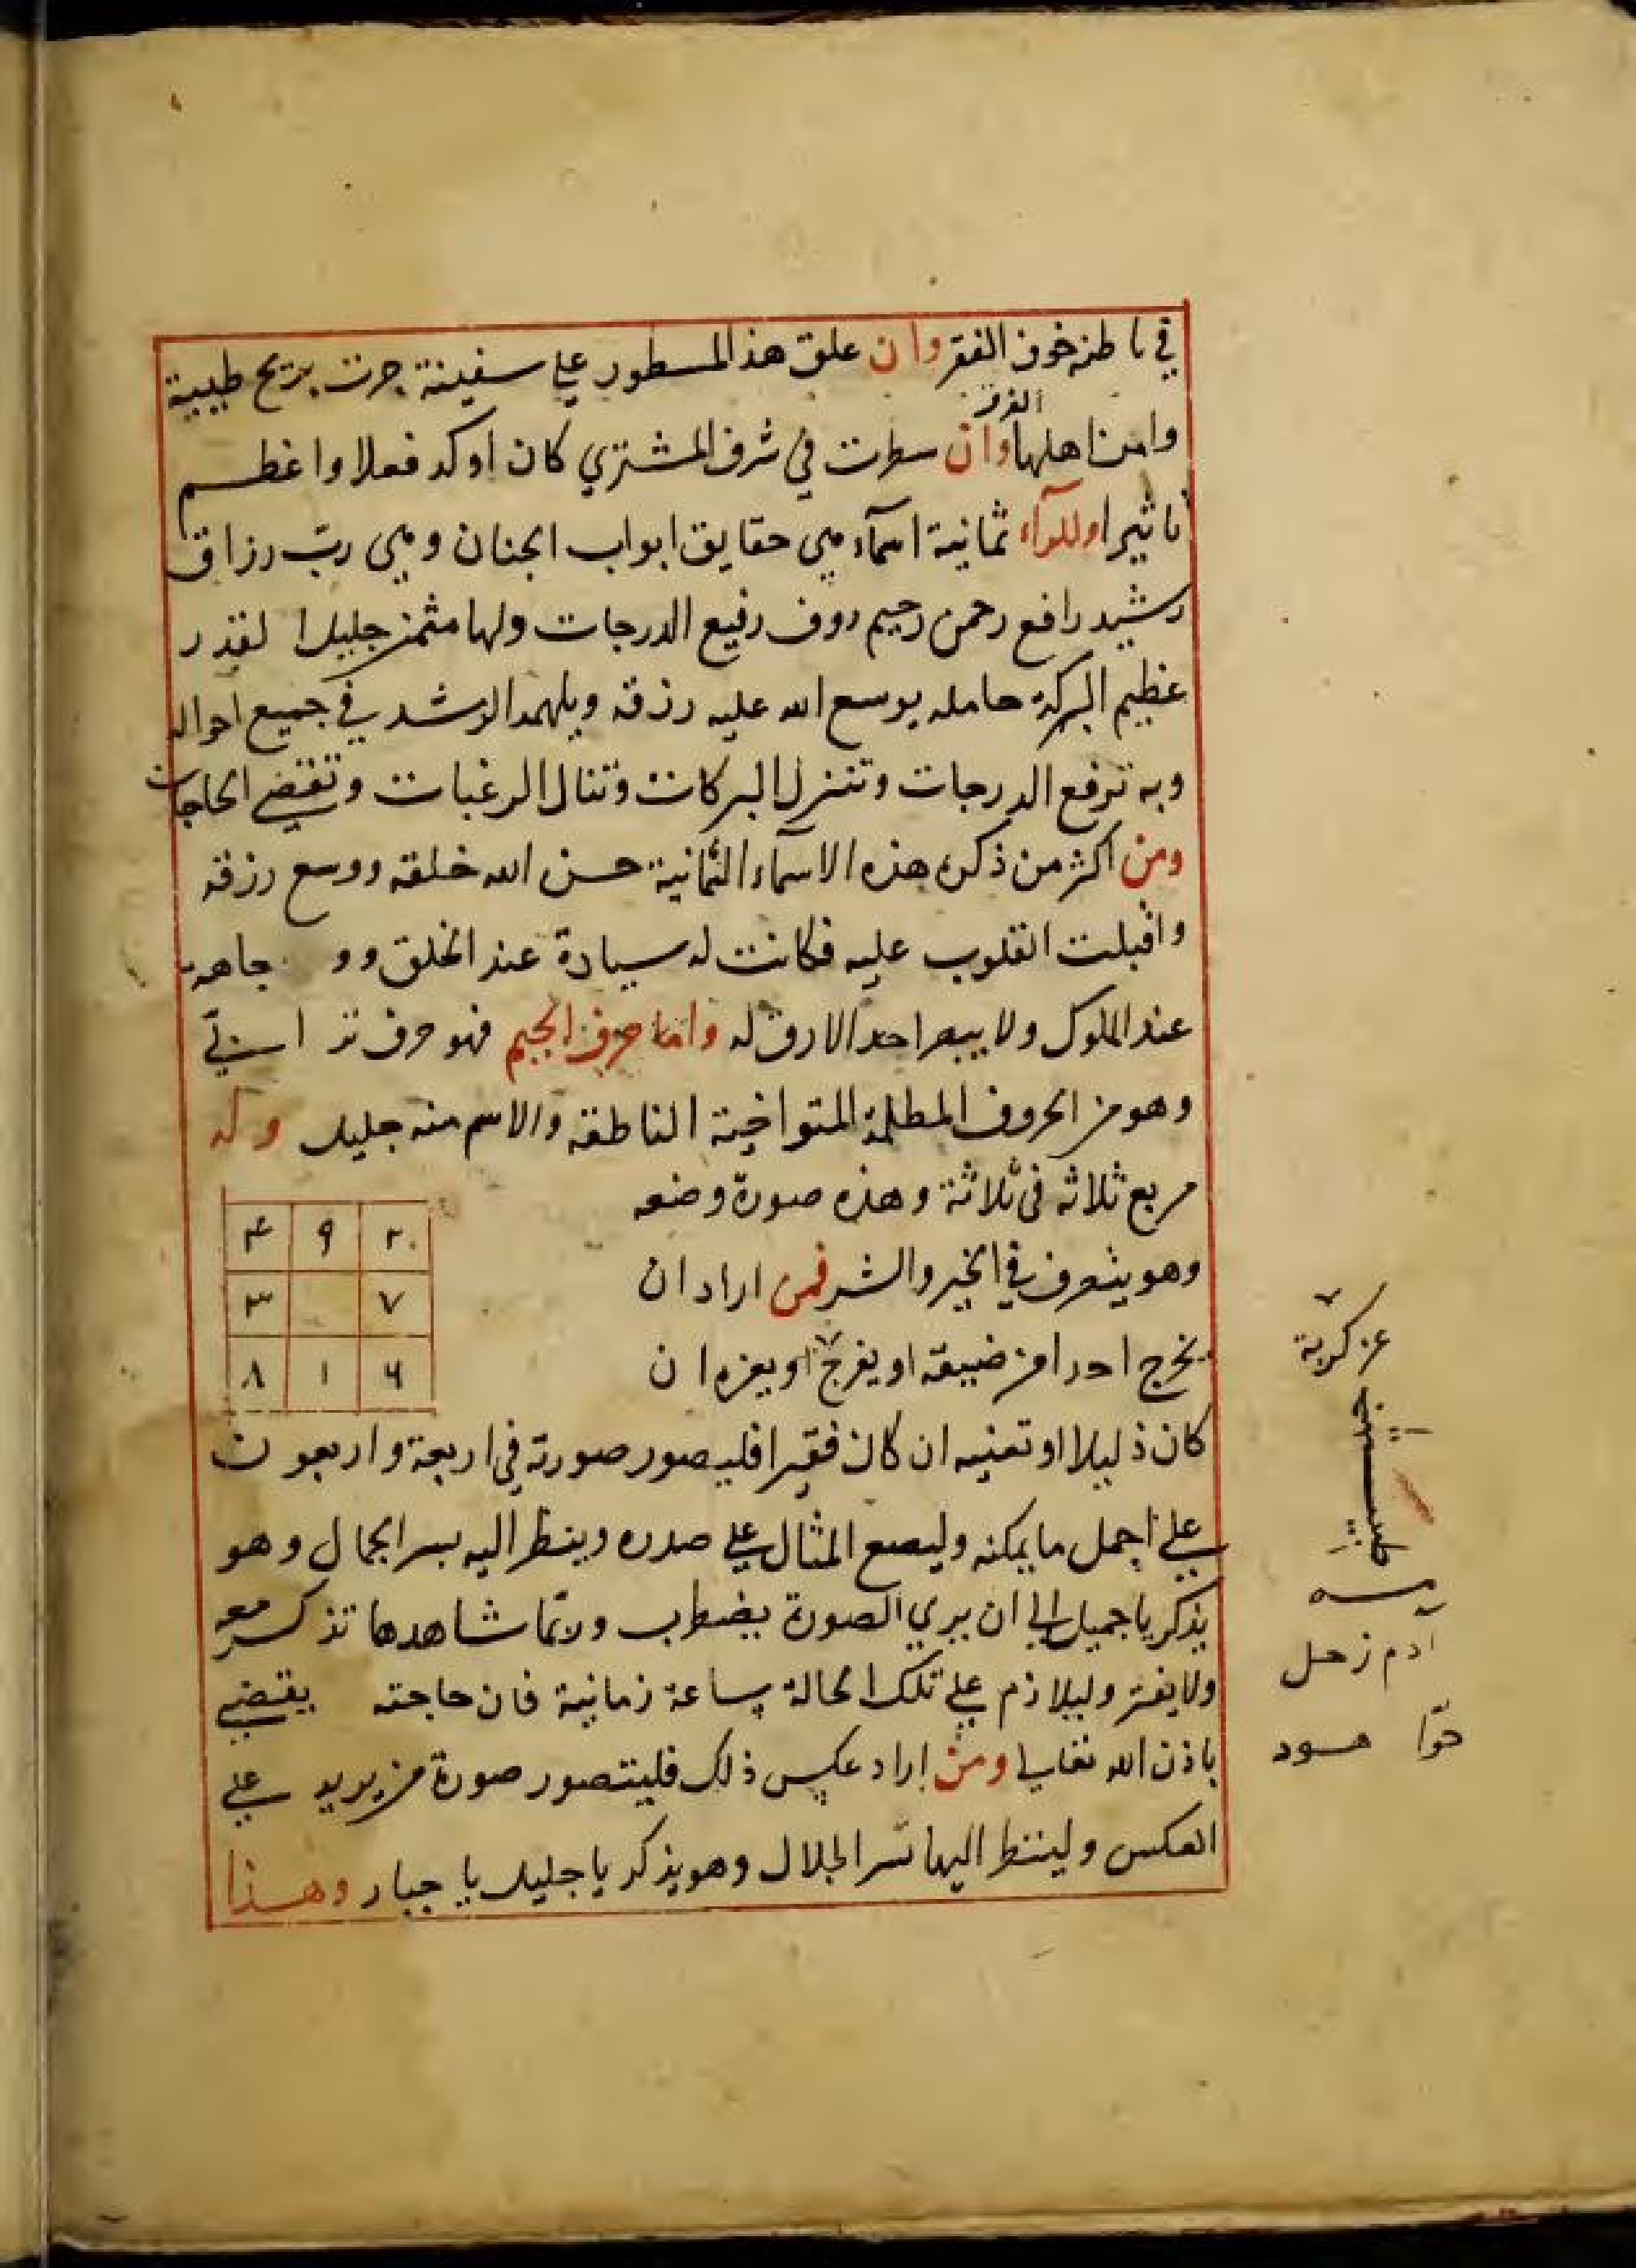 في باطنه خوف الفقر وان علق هذ المسطور على سفينة جرت بريح طيبة
الغرق
وامن اهلها وان سطرت في شرف المشتري كان اوكد فعلا واعظم
تاثيرا وللرآء ثمانية اسمآء هي حقايق ابواب الجنان وهي ربّ رزاق
رشيد رافع رحمن رحيم روف رفيع الدرجات ولها مثمن جليل القدر
عظيم البركة حامله يوسع الله عليه رزقه ويلهمه الرشد في جميع احواله
وبه ترفع الدرجات وتتنزل البركات وتنال الرغبات وتقضي الحاجات
ومن اكثر من ذكره هذه الاسمآء الثمانية حسن الله خلقه ووسع رزقه
واقبلت القلوب عليه فكانت له سيادة عند الخلق وو جاهة
عند الملوك ولا يبصر احد الارق له واما حرف الجيم فهو حرف تر ا بي
وهو من الحروف المظلمة المتواخية الناطقة والاسم منه جليل وله
مربع ثلاثه في ثلاثة وهذه صورة وضعه
٤ ٩ ٢
٣ ٧
٨ ١ ٦
وهو يتصرف في الخير والشر فمن اراد ان
يخرج احدا من ضيقه او يفرج او يعزه ان
كان ذليلا او تغنيه ان كان فقيرا فليصور صورته في اربعة واربعون
على اجمل ما يمكنه وليضع المثال على صدره وينظر اليه بسر الجمال وهو
يذكر يا جميل الى ان يري الصورة يضطرب وربما شاهدها تذكر معه
ولا يفتر وليلازم على تلك الحالة ساعة زمانية فان حاجته يقضي
باذن الله تعالى ومن اراد عكس ذلك فليتصور صورة من يريد على
العكس ولينظر اليها بسر الجلال وهو يذكر يا جليل يا جبار وهذا
عن كربة
آدم زحل
حوّا